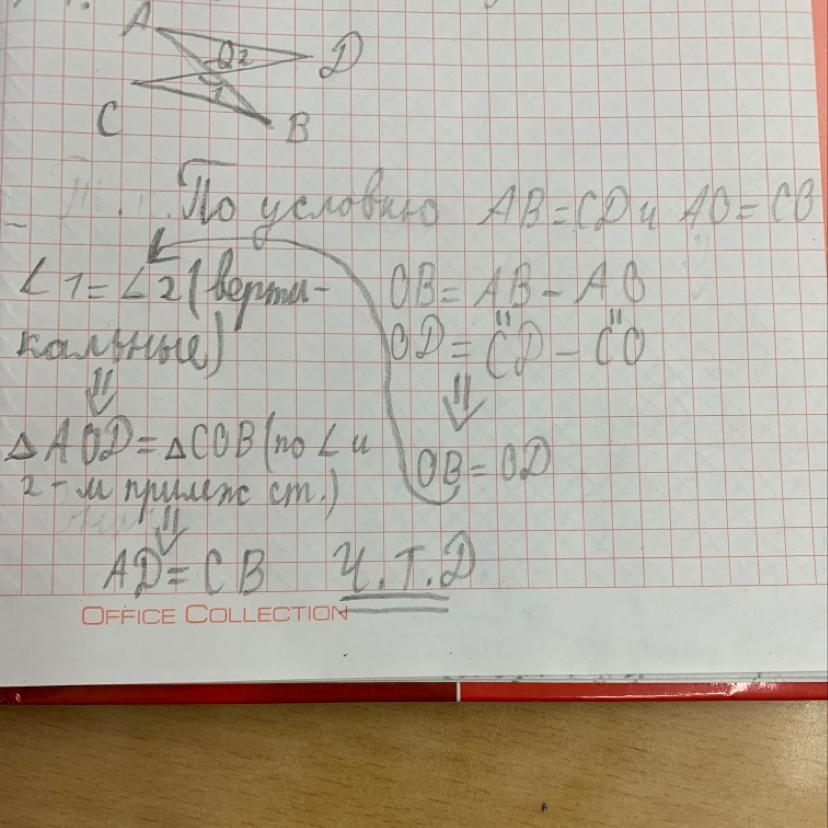 A
O 2
D
C
1
B
По условию AB = CD и AO = CO
∠1 = ∠2 (верти-
кальные)
⇓
△AOD = △COB (по ∠ и
2-м прилеж ст.)
⇓
AD = CB
OB = AB - AO
OD = CD - CO
⇓
OB = OD
Ч.Т.Д
OFFICE COLLECTION